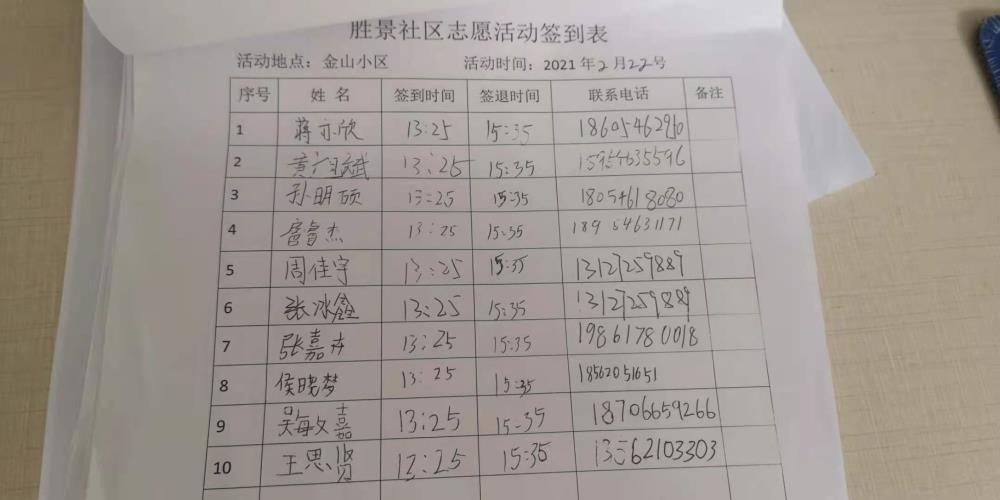 胜景社区志愿活动签到表
活动地点：金山小区 活动时间：2021年2月22号
序号 姓名 签到时间 签退时间 联系电话 备注
1 蒋亦欣 13:25 15:35 18605462910
2 黄 斌 13:25 15:35 15954635596
3 孙明硕 13:25 15:35 18054618080
4 唐睿杰 13:25 15:35 18954631171
5 周佳宇 13:25 15:35 13127259889
6 张冰鑫 13:25 15:35 13127259889
7 张嘉卉 13:25 15:35 19861780018
8 侯晓梦 13:25 15:35 18562051651
9 吴敏嘉 13:25 15-35 18706659266
10 王思贤 13:25 15:35 62103303